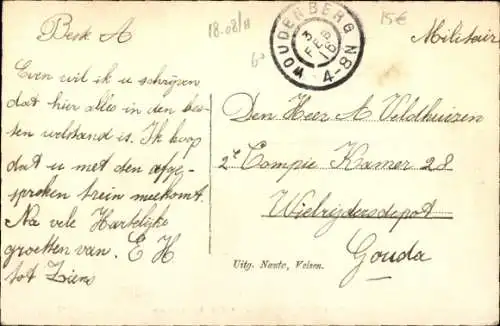 Beste A
18-08/11
15€
Militair
WOUDENBERG
3
FEB
4-8N
Even wil ik u schrijven
dat hier alles in den bes-
ten welstand is. Ik hoop
dat u met den afge-
sproken trein meekomt.
Na vele Hartelijke
groetten van. E H
tot Ziens
Den Heer A Veldhuizen
2e Compie Kamer 28
Wielrijdersdepot
Gouda
Uitg. Nauta, Velsen.